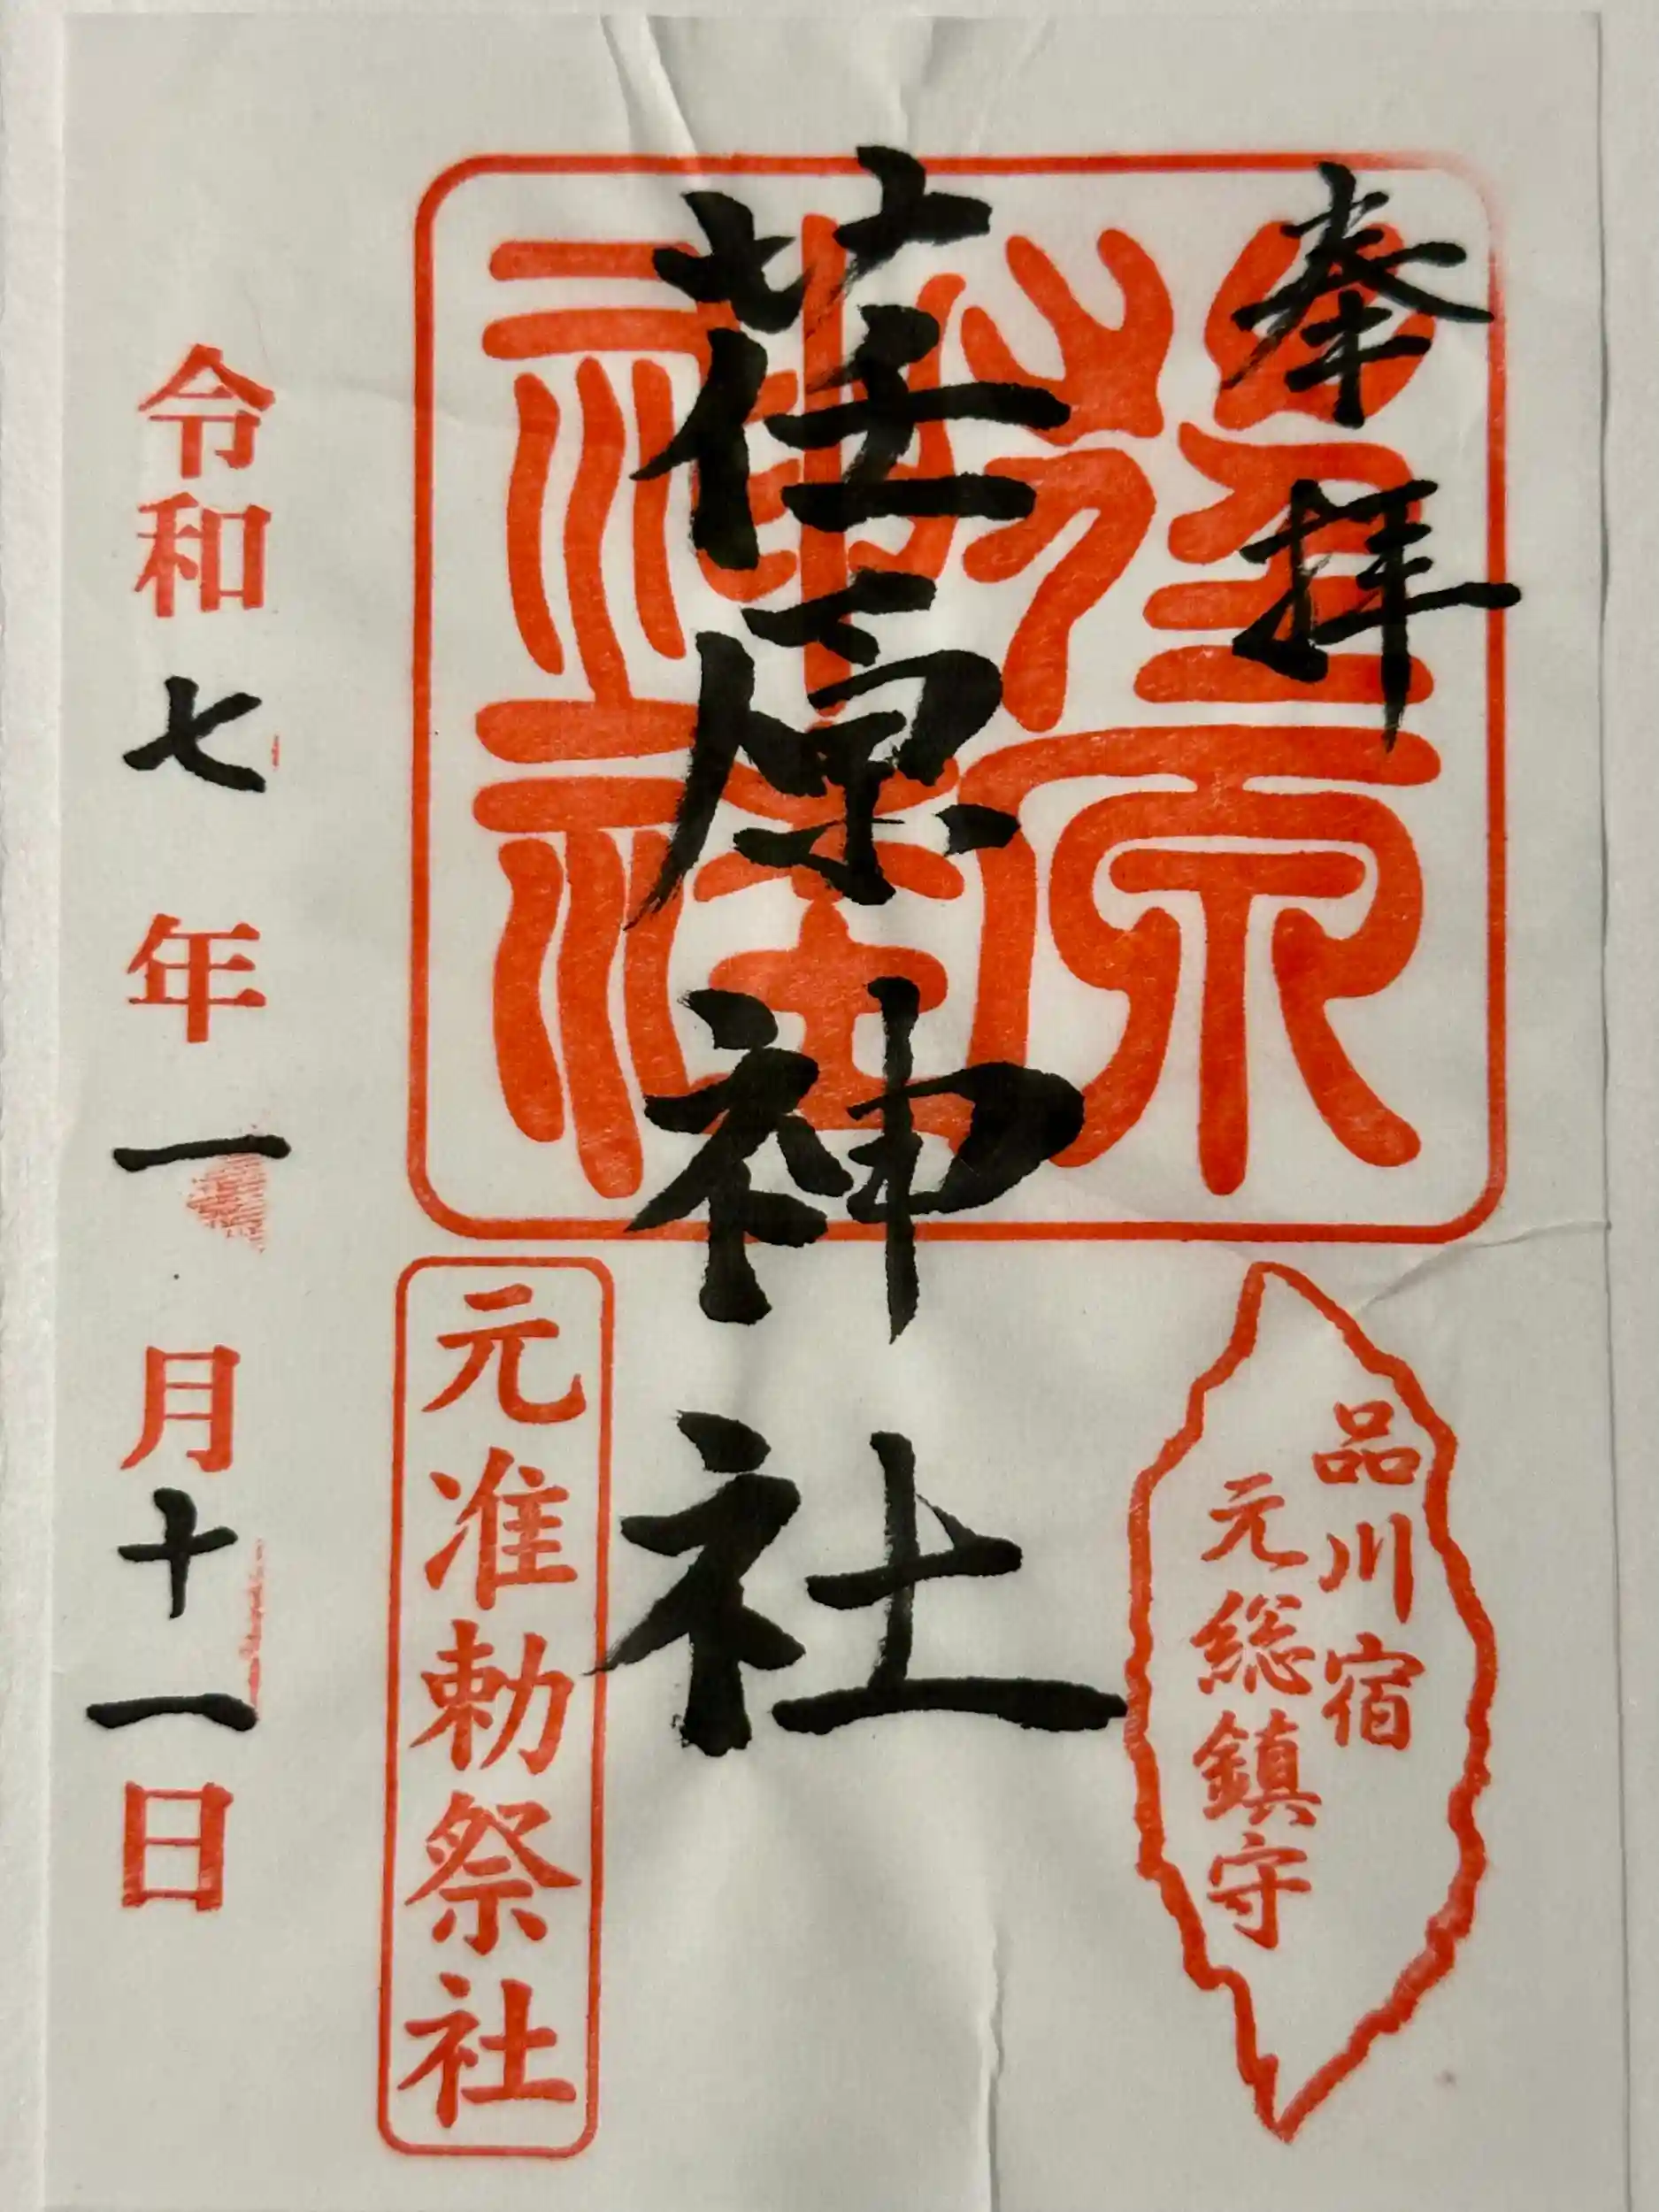 奉拝
品川宿
元総鎮守
荏原神社
荏原
神社
元准勅祭社
令和七年一月十一日